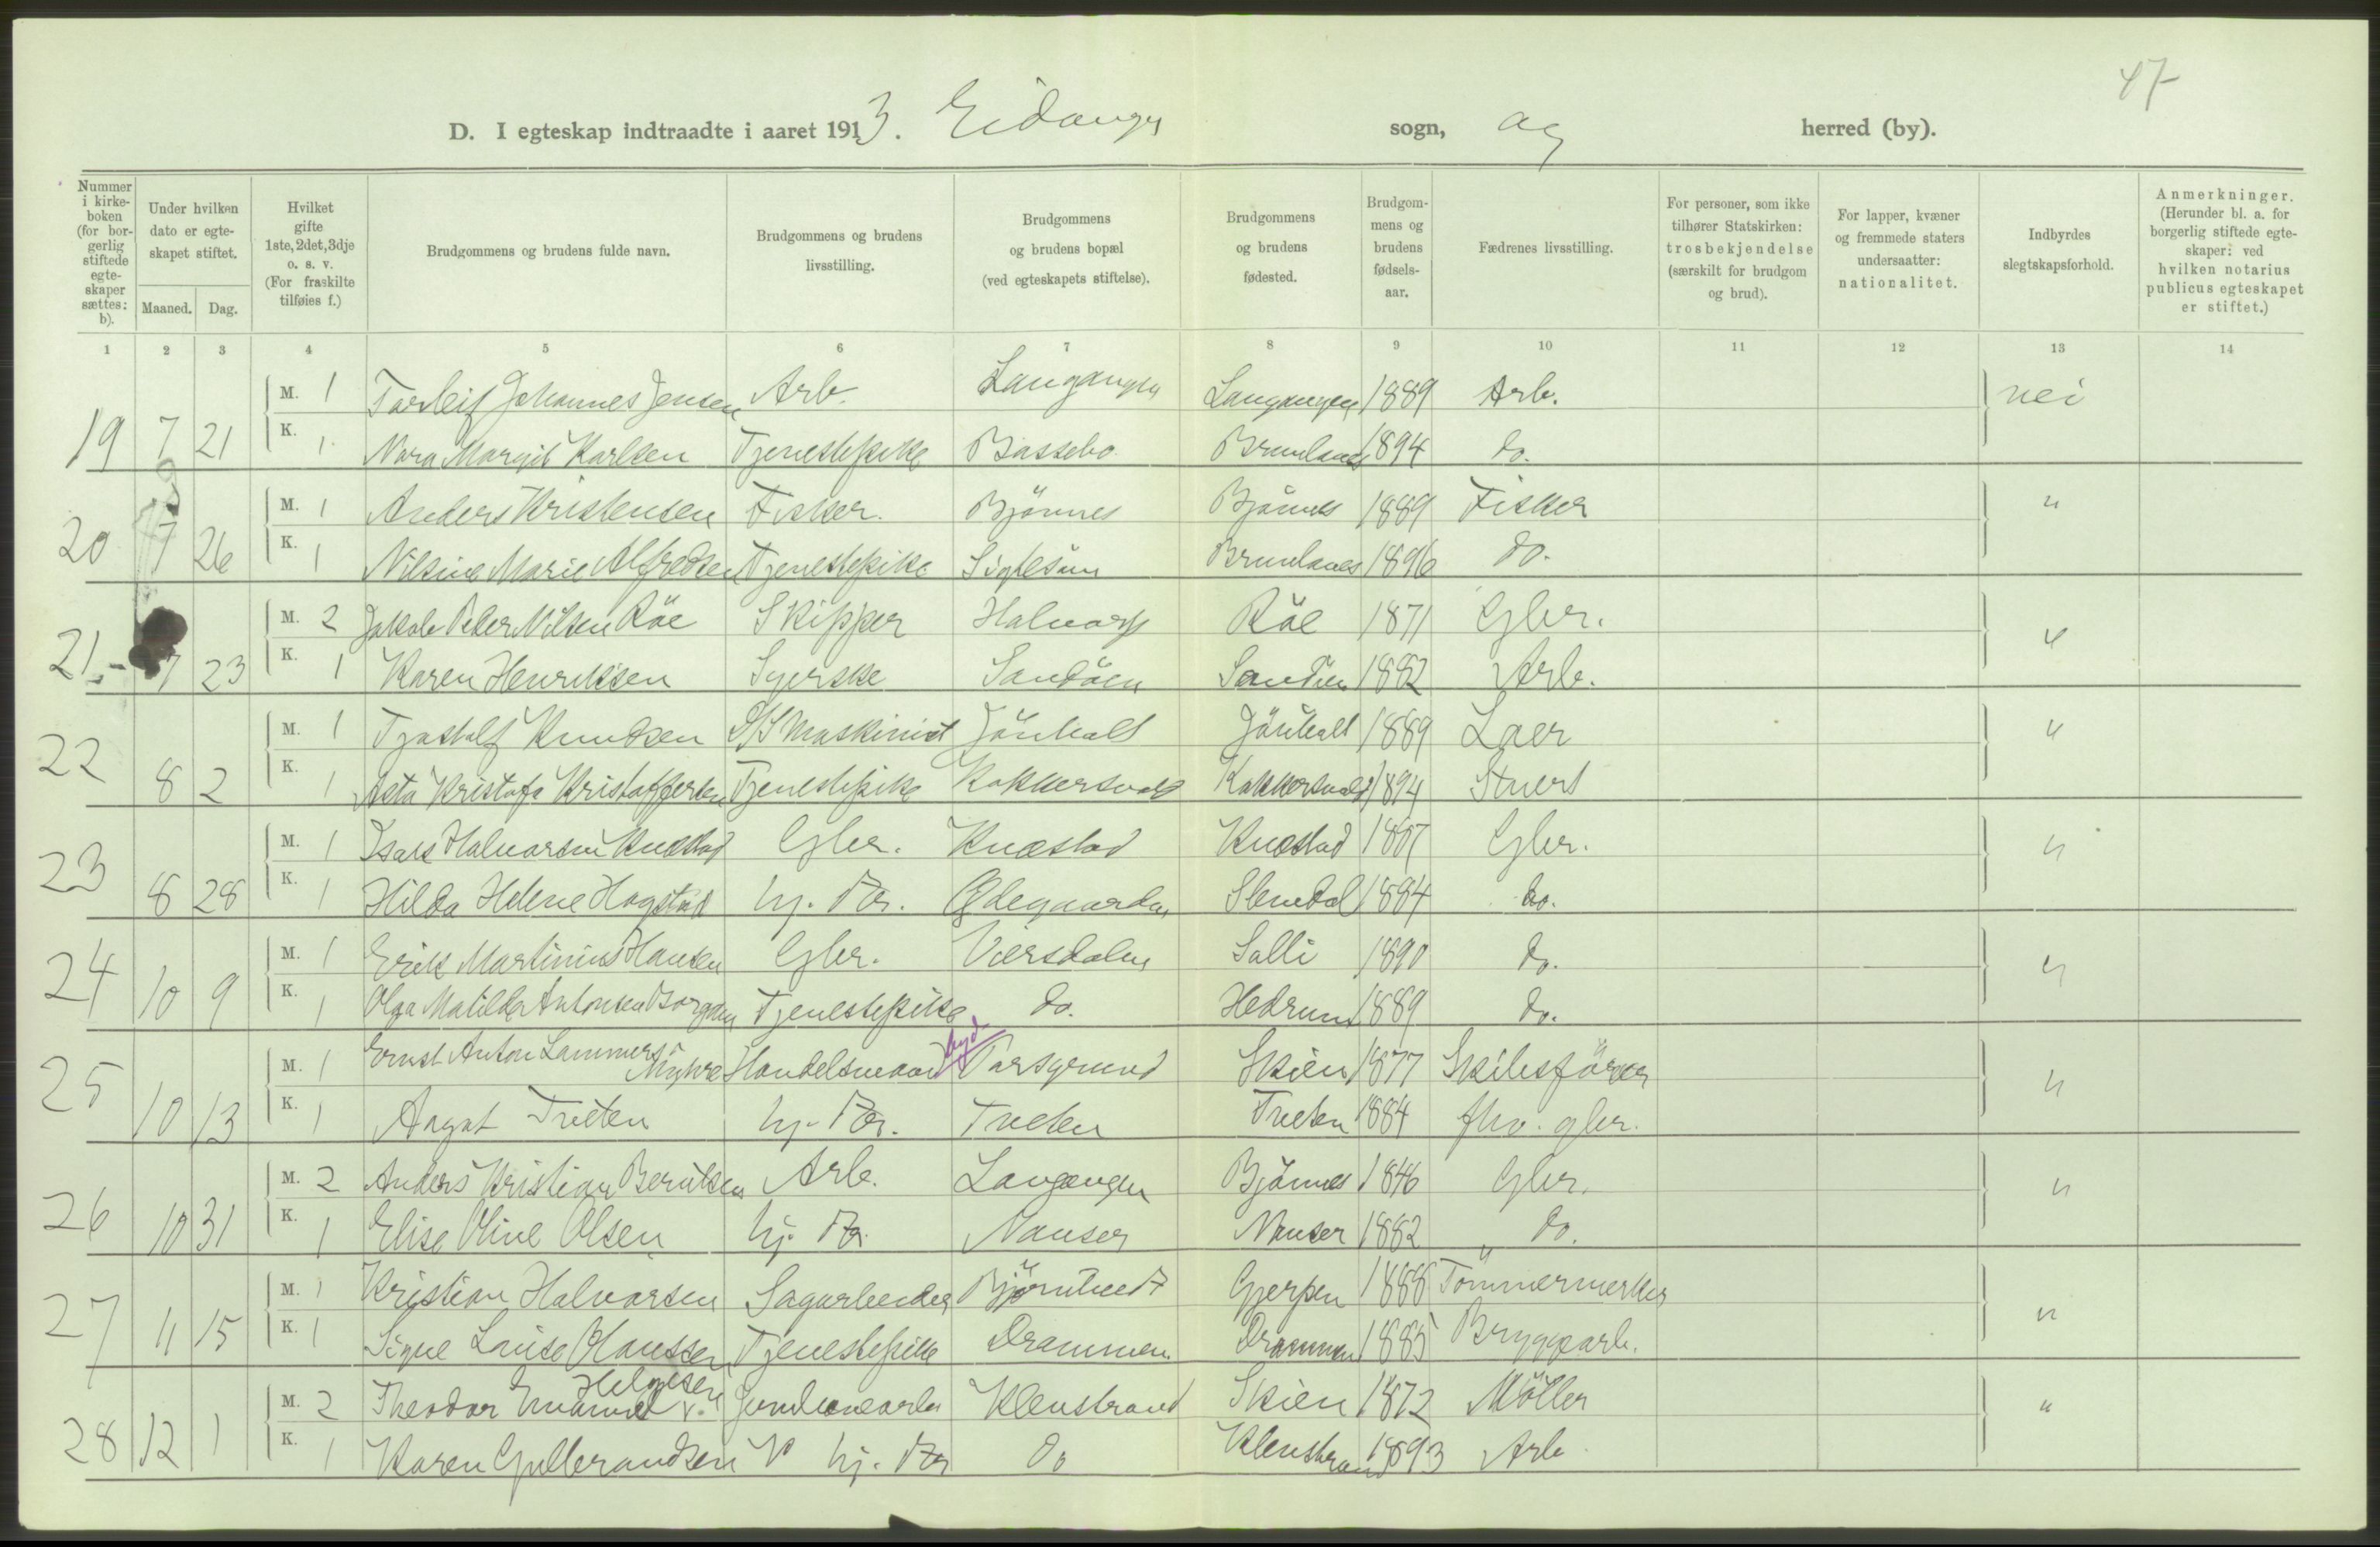 47
D. I egteskap indtraadte i aaret 1913. Eidanger sogn, og herred (by).
Nummer i kirkeboken (for borgerlig stiftede egteskaper sættes: b).
Under hvilken dato er egteskapet stiftet.
Maaned. Dag.
Hvilket gifte 1ste, 2det, 3dje o. s. v. (For fraskilte tilføies f.)
Brudgommens og brudens fulde navn.
Brudgommens og brudens livsstilling.
Brudgommens og brudens bopæl (ved egteskapets stiftelse).
Brudgommens og brudens fødested.
Brudgommens og brudens fødselsaar.
Fædrenes livsstilling.
For personer, som ikke tilhører Statskirken: trosbekjendelse (særskilt for brudgom og brud).
For lapper, kvæner og fremmede staters undersaatter: nationalitet.
Indbyrdes slegtskapsforhold.
Anmerkninger. (Herunder bl. a. for borgerlig stiftede egteskaper: ved hvilken notarius publicus egteskapet er stiftet.)
1 2 3 4 5 6 7 8 9 10 11 12 13 14
M. 1 Torleif Johannes Jensen Arb. Langangen Langangen 1889 Arb. nei
19 7 21 K. 1 Nora Margit Karlsen Tjenestepike Bassebo Brunlanes 1894 do.
M. 1 Anders Kristensen Fisker. Bjönnes Bjönnes 1889 Fisker "
20 7 26 K. 1 Nilsine Marie Alfredsen Tjenestepike Siglesun Brunlanes 1896 do.
M. 2 Jakob Peder Nilsen Röe Skipper Halvarp Röe 1871 Gbr. "
21 7 23 K. 1 Karen Henriksen Syerske Sandöen Sandöen 1882 Arb.
M. 1 Tjostolf Knudsen S/S Maskinist Jönholt Jönholt 1889 Laer "
22 8 2 K. 1 Asta Kristofa Kristoffersen Tjenestepike Kokkersvold Kokkersvold 1894 Stuert
M. 1 Isak Halvorsen Knostad Gbr. Knostad Knostad 1887 Gbr. "
23 8 28 K. 1 Hilda Helene Hogstad hj. dr. Ødegaarden Slemdal 1884 do.
M. 1 Erik Martinius Hansen Gbr. Viersdalen Solli 1890 do. "
24 10 9 K. 1 Olga Matilda Antonsen Borgen Tjenestepike do. Hedrum 1889 do.
25 M. 1 Ernst Anton Lammers Myhre Handelsmand Porsgrund byd. Skien 1877 Skibsförer "
10 13 K. 1 Aagot Tveten hj. dr. Tveten Tveten 1884 fhv. gbr.
M. 2 Anders Kristian Berntsen Arb. Langangen Bjönnes 1846 Gbr. "
26 10 31 K. 1 Elise Oline Olsen hj. dr. Nanser Nanser 1882 do.
M. 1 Kristian Halvorsen Sagarbeider Björntvedt Gjerpen 1888 Tömmermerker "
27 11 15 K. 1 Signe Louise Hanssen Tjenestepike Drammen Drammen 1885 Bryggearb.
M. 2 Theodor Emanuel Helgesen v. Klenstrand Skien 1872 Möller "
28 12 1 K. 1 Karen Gullerandsen hj. dr do Klenstrand 1893 Arb